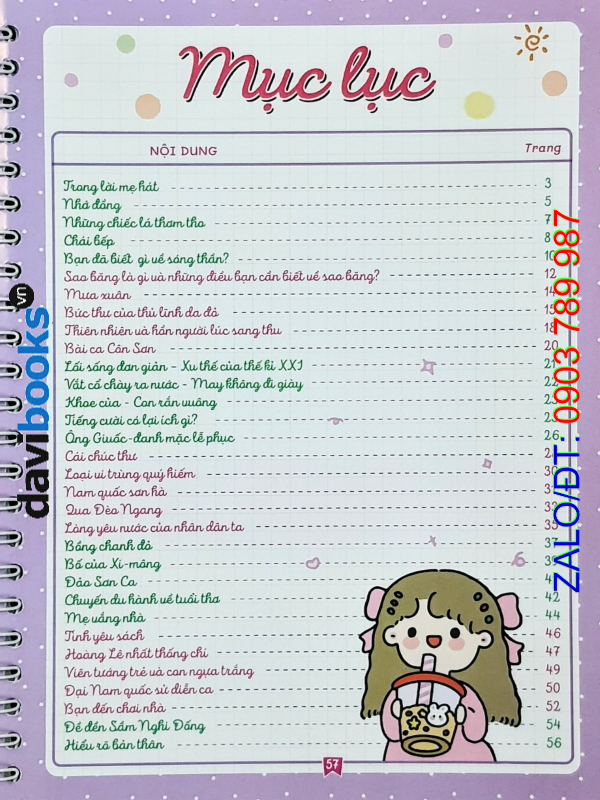 Mục lục
NỘI DUNG Trang
Trong lời mẹ hát 3
Nhớ đồng 5
Những chiếc lá thơm tho 7
Chái bếp 8
Bạn đã biết gì về sóng thần? 10
Sao băng là gì và những điều bạn cần biết về sao băng? 12
Mưa xuân 14
Bức thư của thủ lĩnh da đỏ 15
Thiên nhiên và hồn người lúc sang thu 18
Bài ca Côn Sơn 20
Lối sống đơn giản - Xu thế của thế kỉ XXI 21
Vắt cổ chày ra nước - May không đi giày 22
Khoe của - Con rắn vuông 23
Tiếng cười có lợi ích gì?
Ông Giuốc-đanh mặc lễ phục 26
Cái chúc thư 28
Loại vi trùng quý hiếm 30
Nam quốc sơn hà 31
Qua Đèo Ngang 33
Lòng yêu nước của nhân dân ta 35
Bồng chanh đỏ 37
Bố của Xi-mông 39
Đảo Sơn Ca
Chuyến du hành về tuổi thơ 42
Mẹ vắng nhà 44
Tình yêu sách 46
Hoàng Lê nhất thống chí 47
Viên tướng trẻ và con ngựa trắng 49
Đại Nam quốc sử diễn ca 50
Bạn đến chơi nhà 52
Đề đền Sầm Nghi Đống 54
Hiểu rõ bản thân 56
57
davibooks.vn
ZALO/ĐT: 0903 789 987